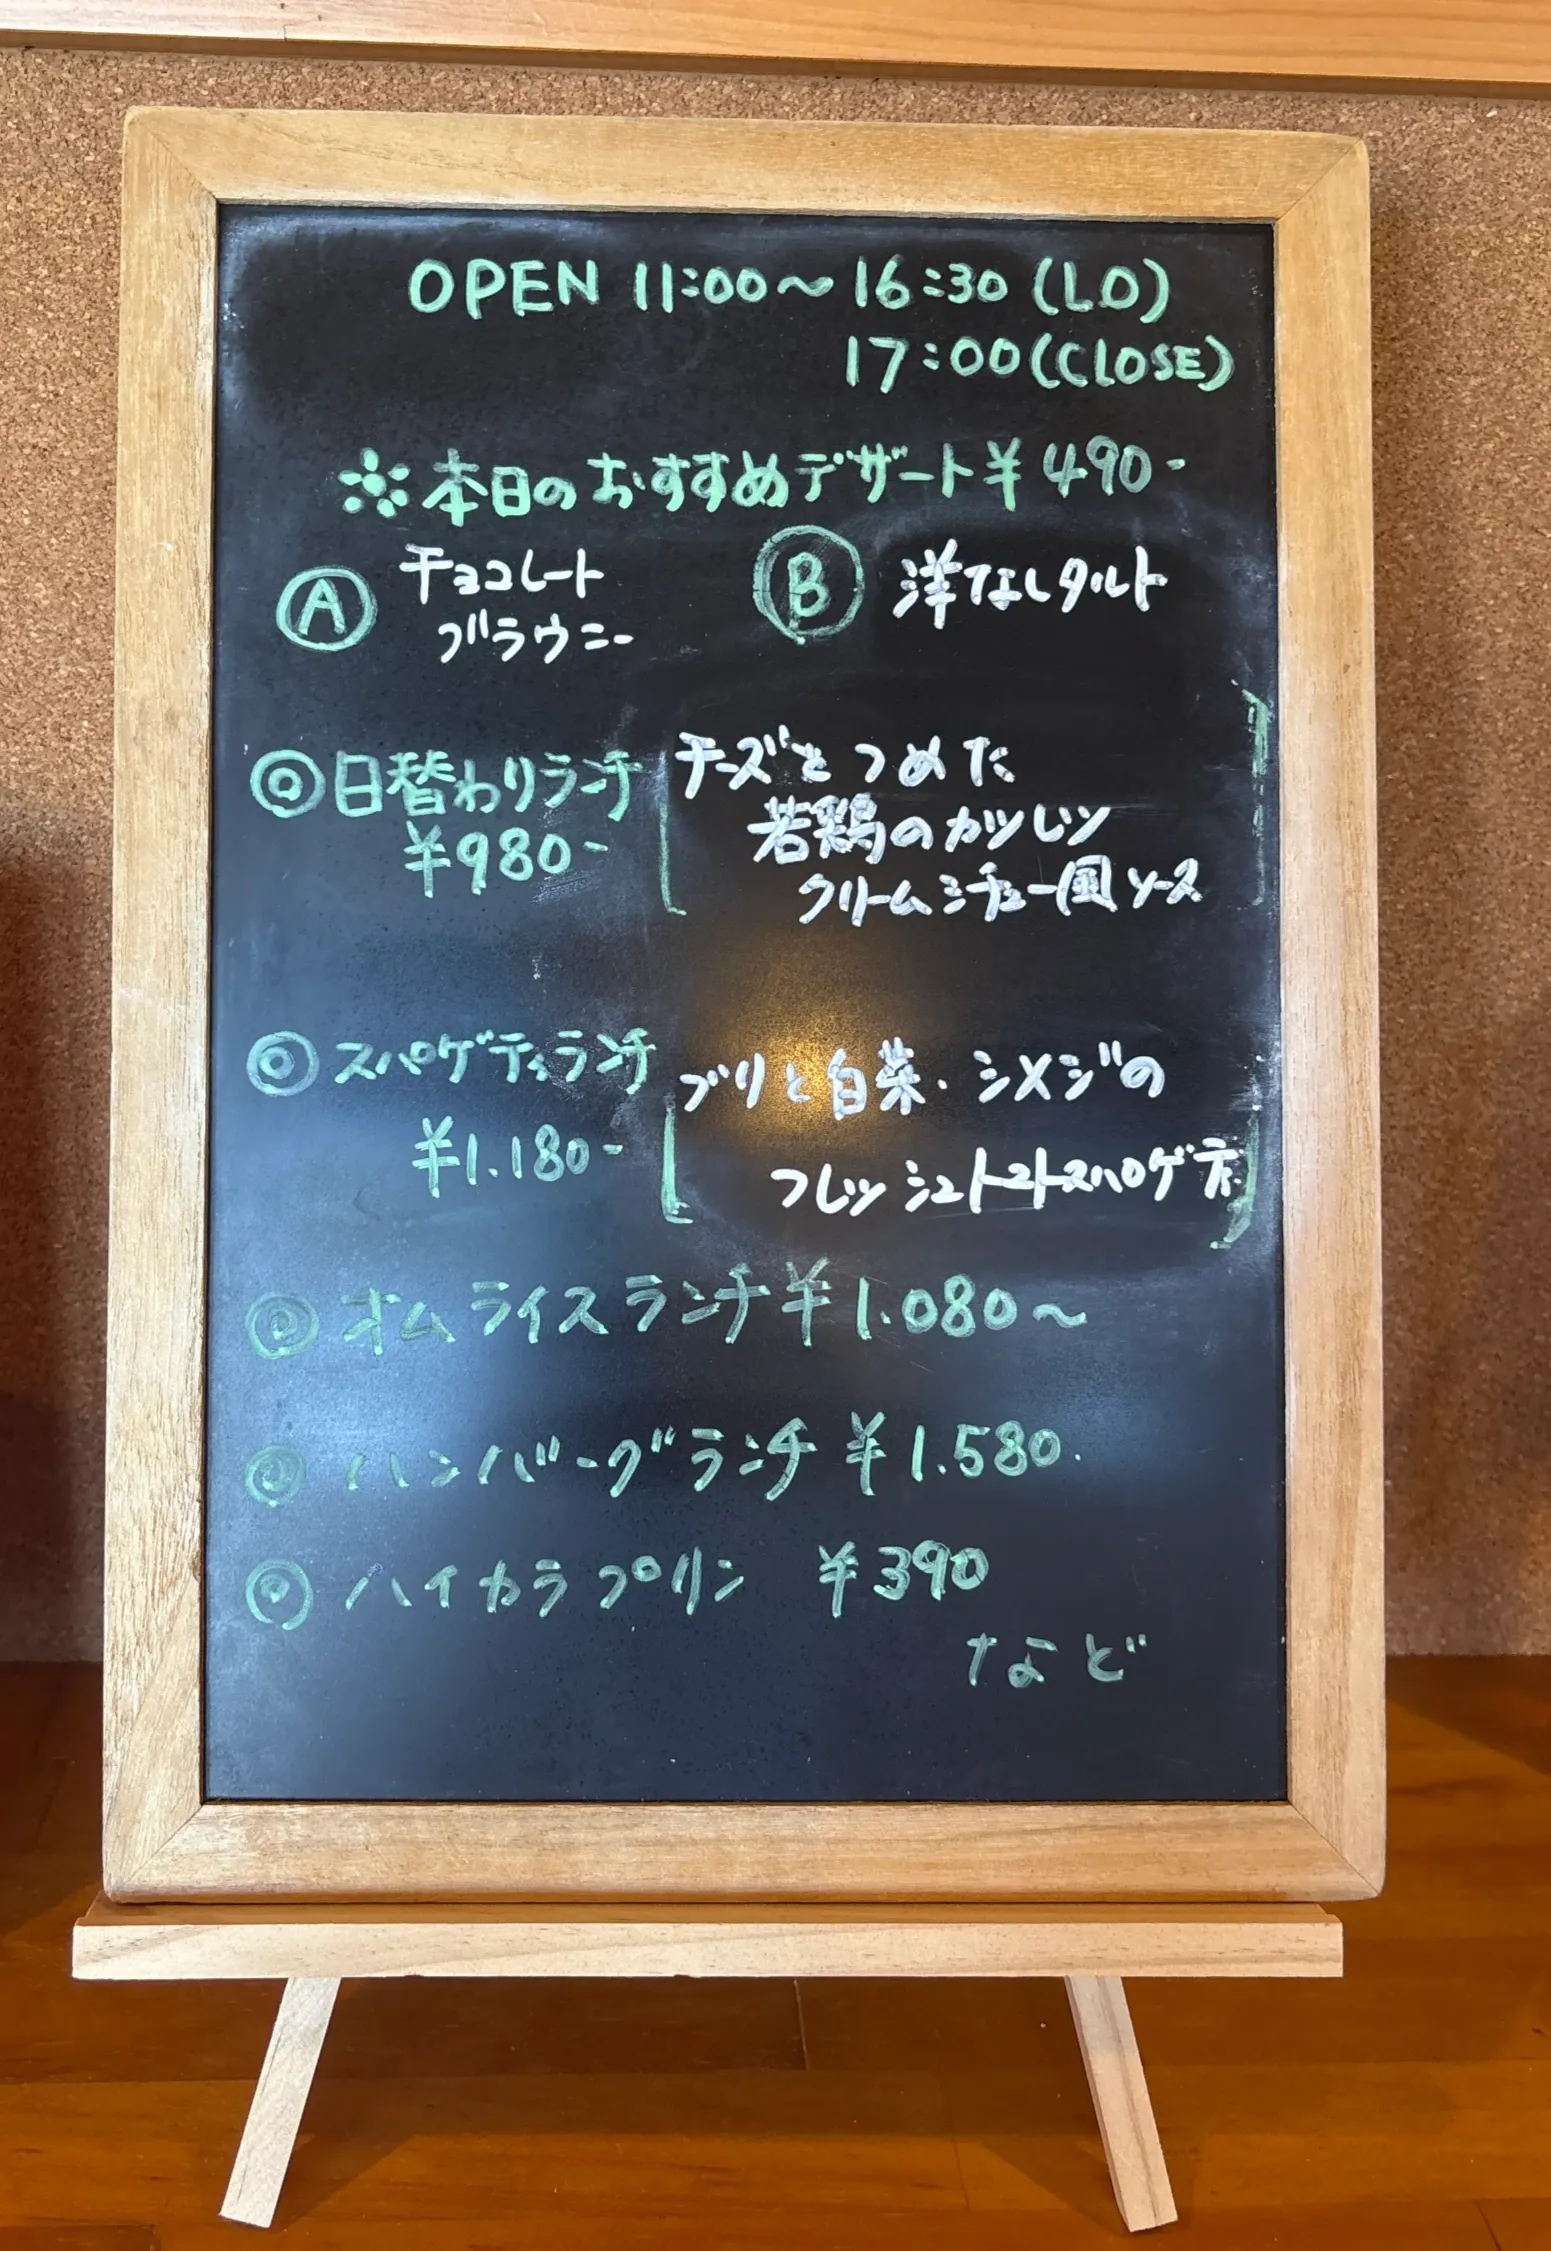 OPEN 11:00〜16:30(LO)
17:00(CLOSE)
※本日のおすすめデザート¥490-
Ⓐ チョコレート
ブラウニー
Ⓑ 洋なしタルト
◎日替わりランチ
¥980-
チーズをつめた
若鶏のカツレツ
クリームシチュー風ソース
◎スパゲティランチ
¥1.180-
ブリと白菜・シメジの
フレッシュトマトスパゲティ
◎オムライスランチ¥1.080〜
◎ハンバーグランチ ¥1.580.
◎ハイカラプリン ¥390
など